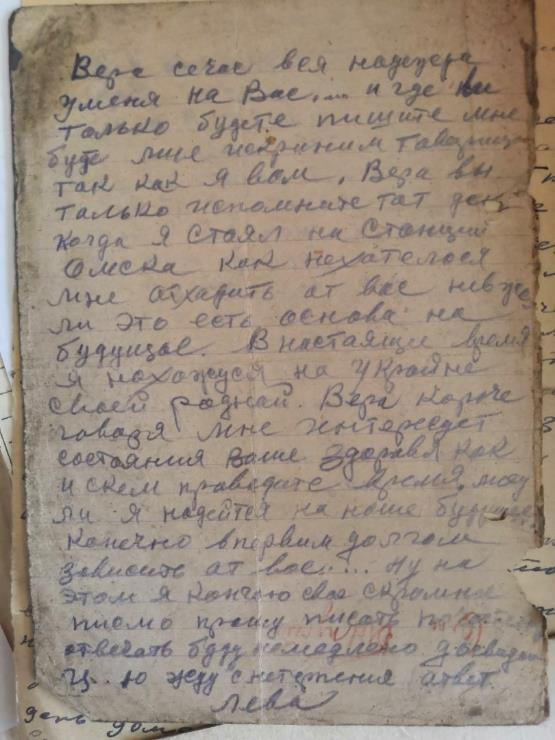 Вера сечас вся надежда
уменя на Вас,... и где вы
только будете пишите мне
буде мне искриним товарищ
так как я вам, Вера вы
талько испомните тот день
когда я стоял на станций
Омска как нехателося
мне атхадить ат вас невже
ли это есть основа на
будущае. В настаящи время
я нахожуся на украйне
своей родной. Вера короче
говоря мне интересует
состояния ваше здоровя как
и скем праводите время, могу
ли я надеятся на наше будущее
канечно впервим долгам
зависить ат вас..... Ну на
этом я кончаю свае скромное
писмо прошу писать
атвечать буду немедлено досвидан
Ц..ю жду снетерпения ответ
Лева
день дом